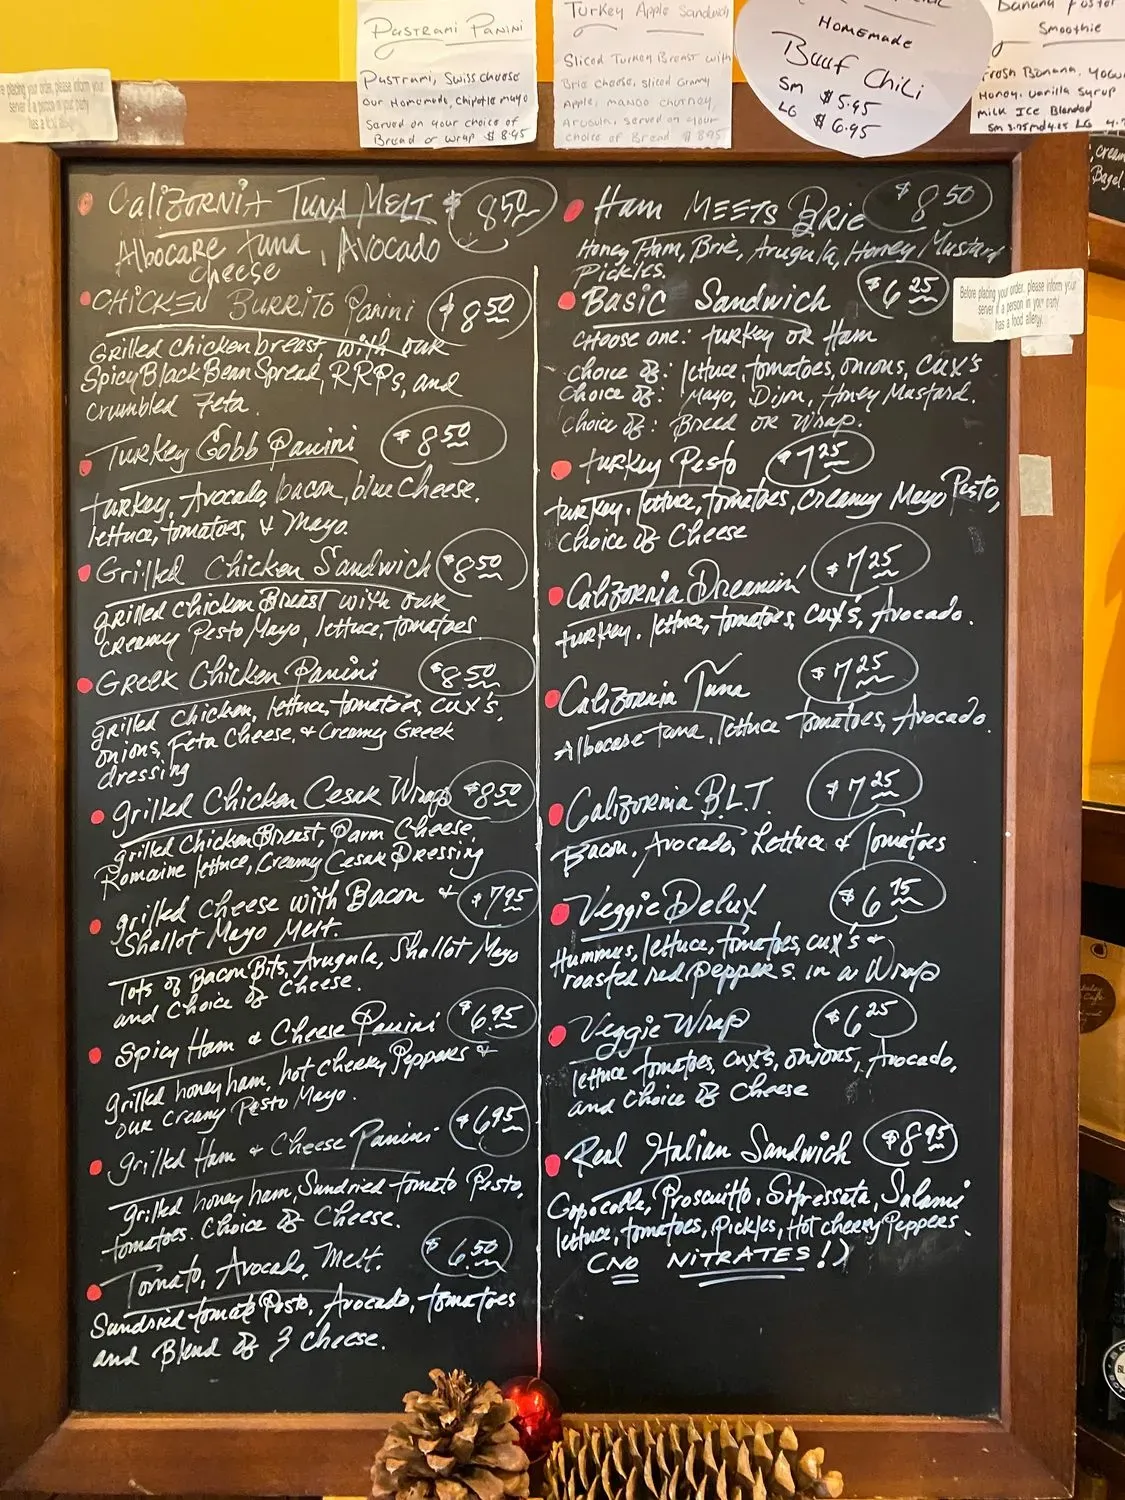 Pastrami Panini
Pastrami, Swiss cheese
our Homemade, chipotle mayo
Served on your choice of
Bread or wrap $8.95
Turkey Apple Sandwich
Sliced Turkey Breast with
Brie cheese, sliced Granny
Apple, mango chutney,
Arugula, served on your
choice of Bread $8.95
Homemade
Beef Chili
Sm $5.95
LG $6.95
Banana Foster
Smoothie
Fresh Banana, Yogu
Honey, vanilla syrup
milk Ice Blended
Sm 3.75 md 4.25 LG 4.7
e placing your order, please inform your
server if a person in your party
has a food allergy.
, cream
Bagel
California Tuna Melt $8.50
Albocare tuna, Avocado
cheese
Chicken Burrito Panini $8.50
Grilled chicken breast, with our
Spicy Black Bean Spread, RRPs, and
crumbled Feta.
Turkey Cobb Panini $8.50
turkey, Avocado, bacon, blue Cheese.
lettuce, tomatoes, & Mayo.
Grilled Chicken Sandwich $8.50
grilled chicken Breast with our
creamy Pesto Mayo, lettuce, tomatoes
Greek Chicken Panini $8.50
grilled chicken, lettuce, tomatoes, cux's,
onions, Feta Cheese, & Creamy Greek
dressing
grilled Chicken Cesar Wrap $8.50
grilled Chicken Breast, Parm Cheese,
Romaine lettuce, Creamy Cesar Dressing
grilled cheese with Bacon & $7.95
Shallot Mayo Melt.
Tots of Bacon Bits, Arugula, Shallot Mayo
and Choice of Cheese.
Spicy Ham & Cheese Panini $6.95
grilled honey ham, hot cherry Peppers &
our creamy Pesto Mayo.
grilled Ham & Cheese Panini $6.95
grilled honey ham, Sundried tomato Pesto,
tomatoes. Choice of Cheese.
Tomato, Avocado, Melt. $6.50
Sundried tomato Pesto, Avocado, tomatoes
and Blend of 3 cheese.
Ham Meets Brie $8.50
Honey Ham, Brie, Arugula, Honey Mustard
Pickles.
Basic Sandwich $6.25
choose one: turkey or Ham
choice of: lettuce, tomatoes, onions, cux's
choice of: Mayo, Dijon, Honey Mustard.
choice of: Bread or Wrap.
Before placing your order, please inform your
server if a person in your party
has a food allergy.
turkey Pesto $7.25
turkey, lettuce, tomatoes, creamy Mayo Pesto,
choice of Cheese
California Dreamin' $7.25
turkey, lettuce, tomatoes, cux's, Avocado.
California Tuna $7.25
Albocare tuna, lettuce Tomatoes, Avocado.
California B.L.T. $7.25
Bacon, Avocado, Lettuce & Tomatoes
Veggie Delux $6.75
Hummus, lettuce, tomatoes, cux's &
roasted red peppers. in a Wrap
Veggie Wrap $6.25
lettuce tomatoes, cux's, onions, Avocado,
and choice of Cheese
Real Italian Sandwich $8.95
Copocolla, Proscuitto, Sopressata, Salami
lettuce, tomatoes, pickles, Hot cherry Peppers.
(NO NITRATES!)